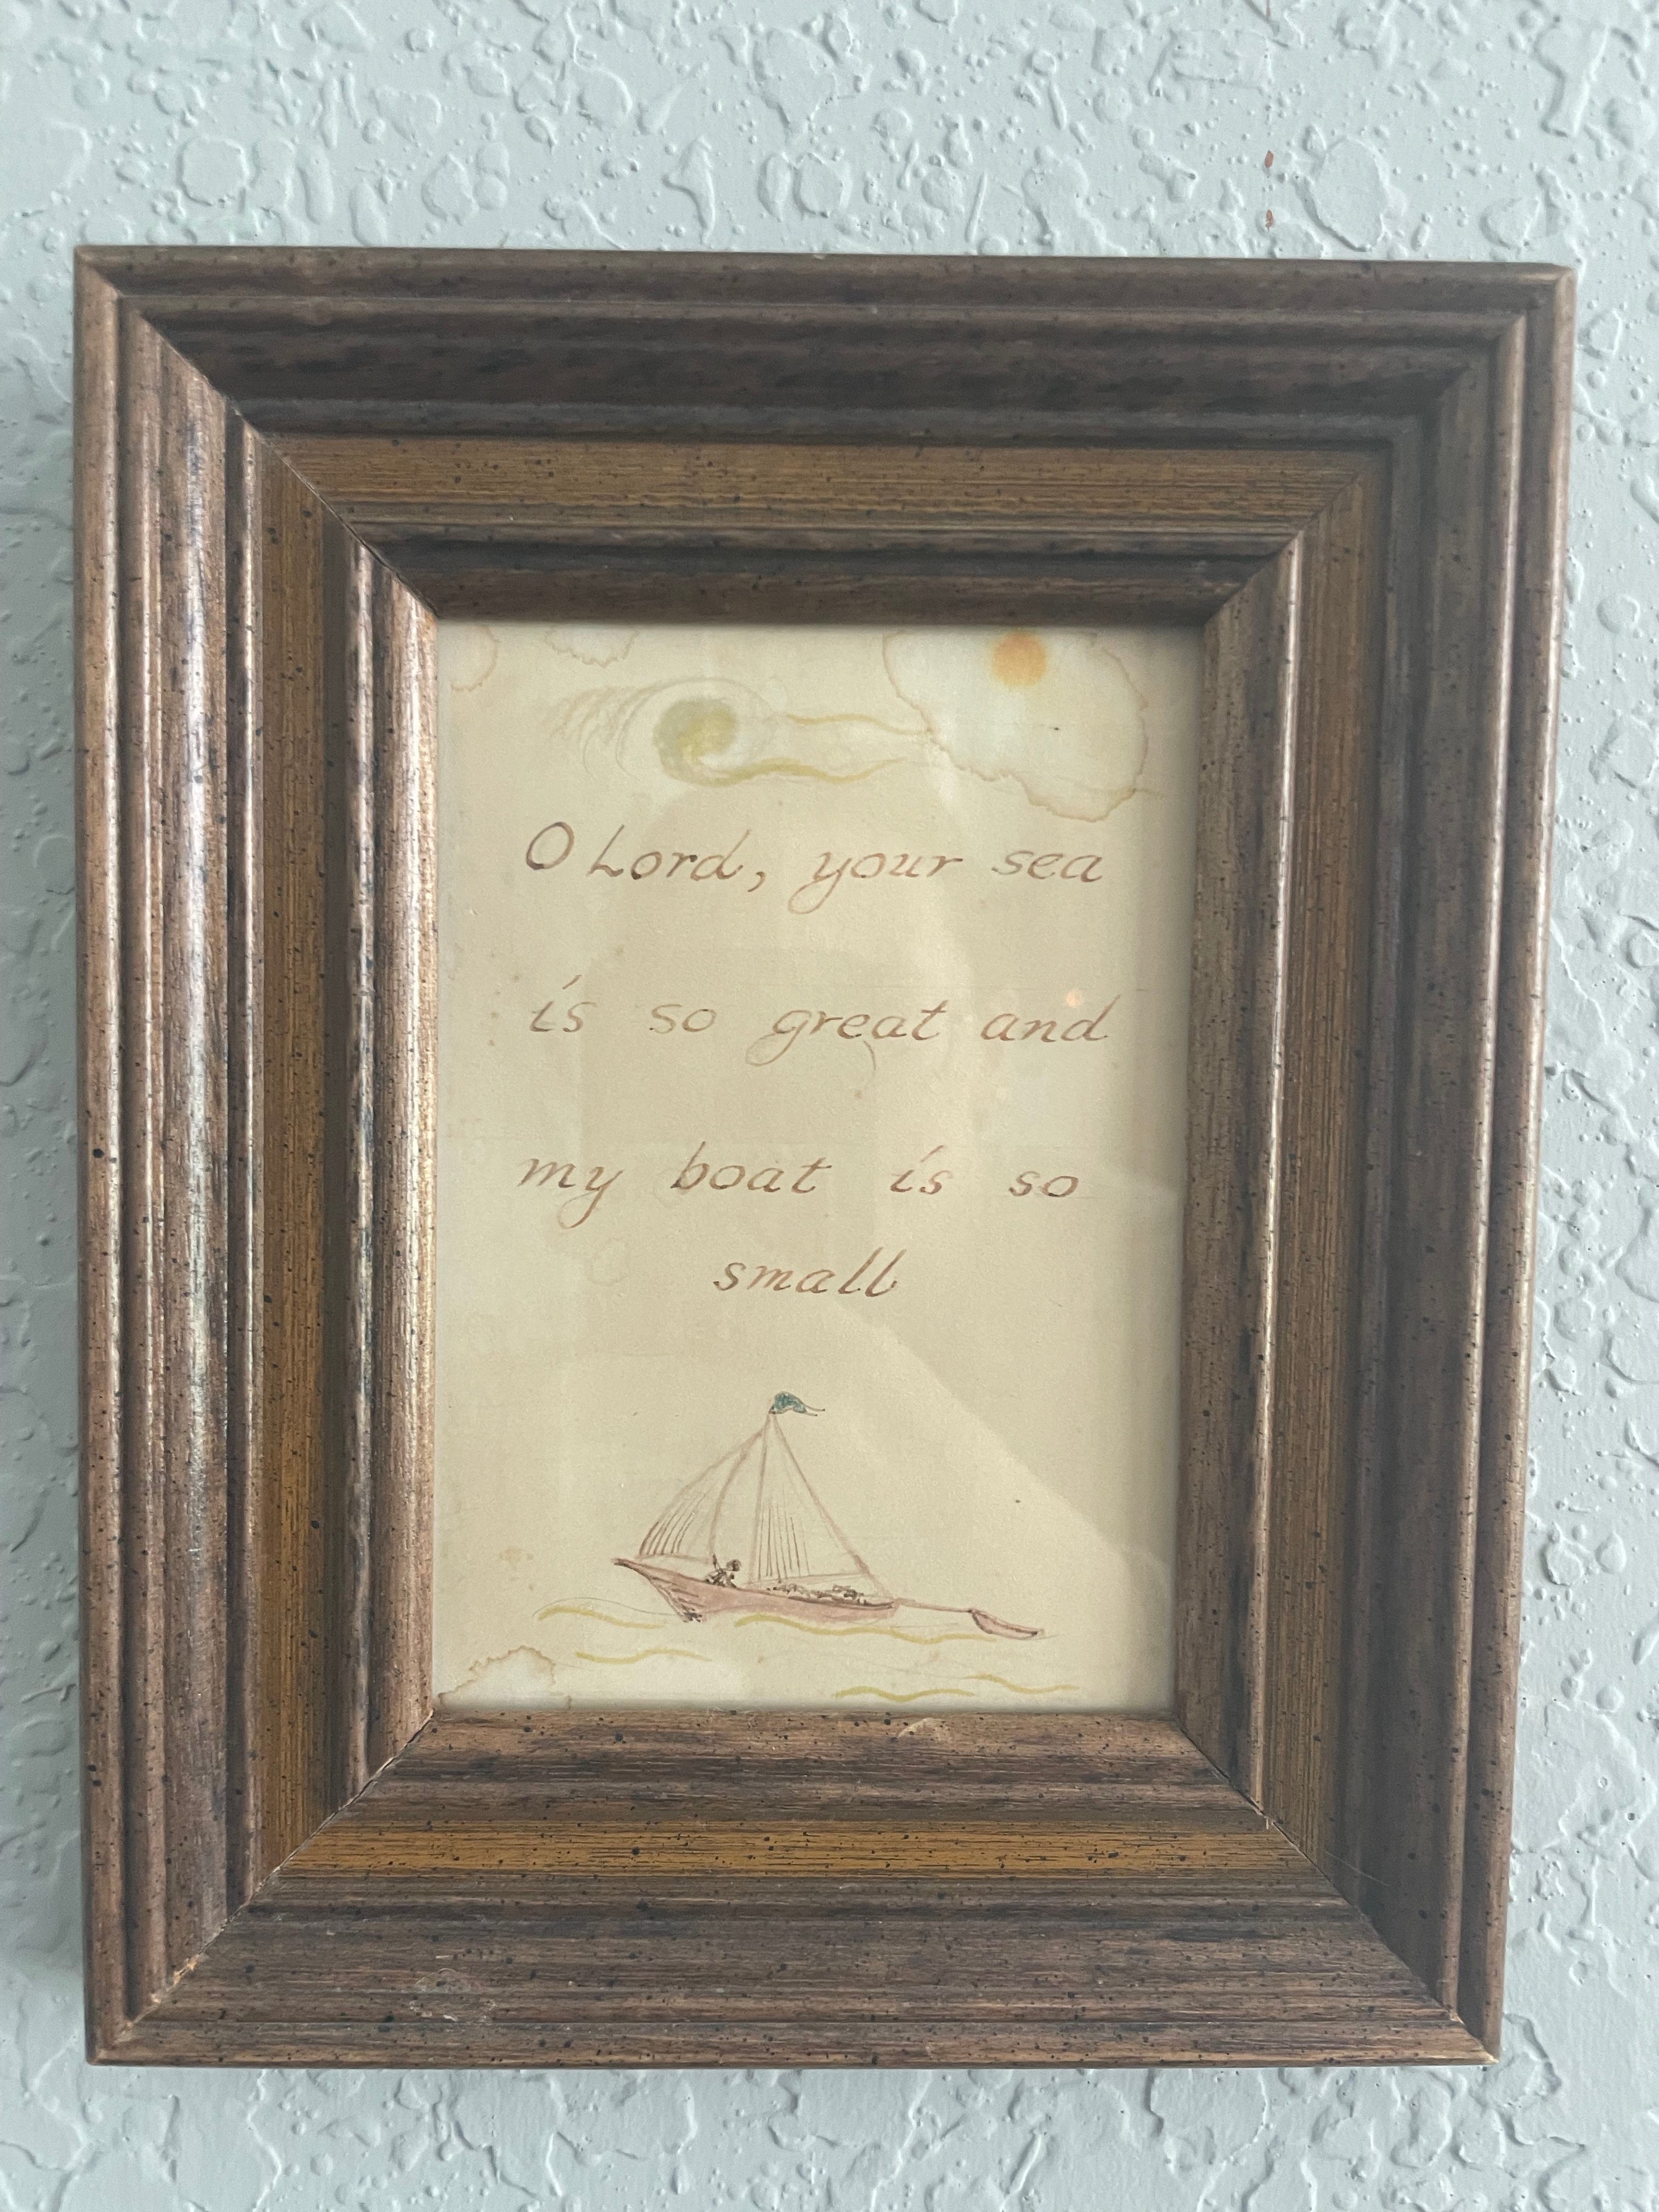 O Lord, your sea
is so great and
my boat is so
small